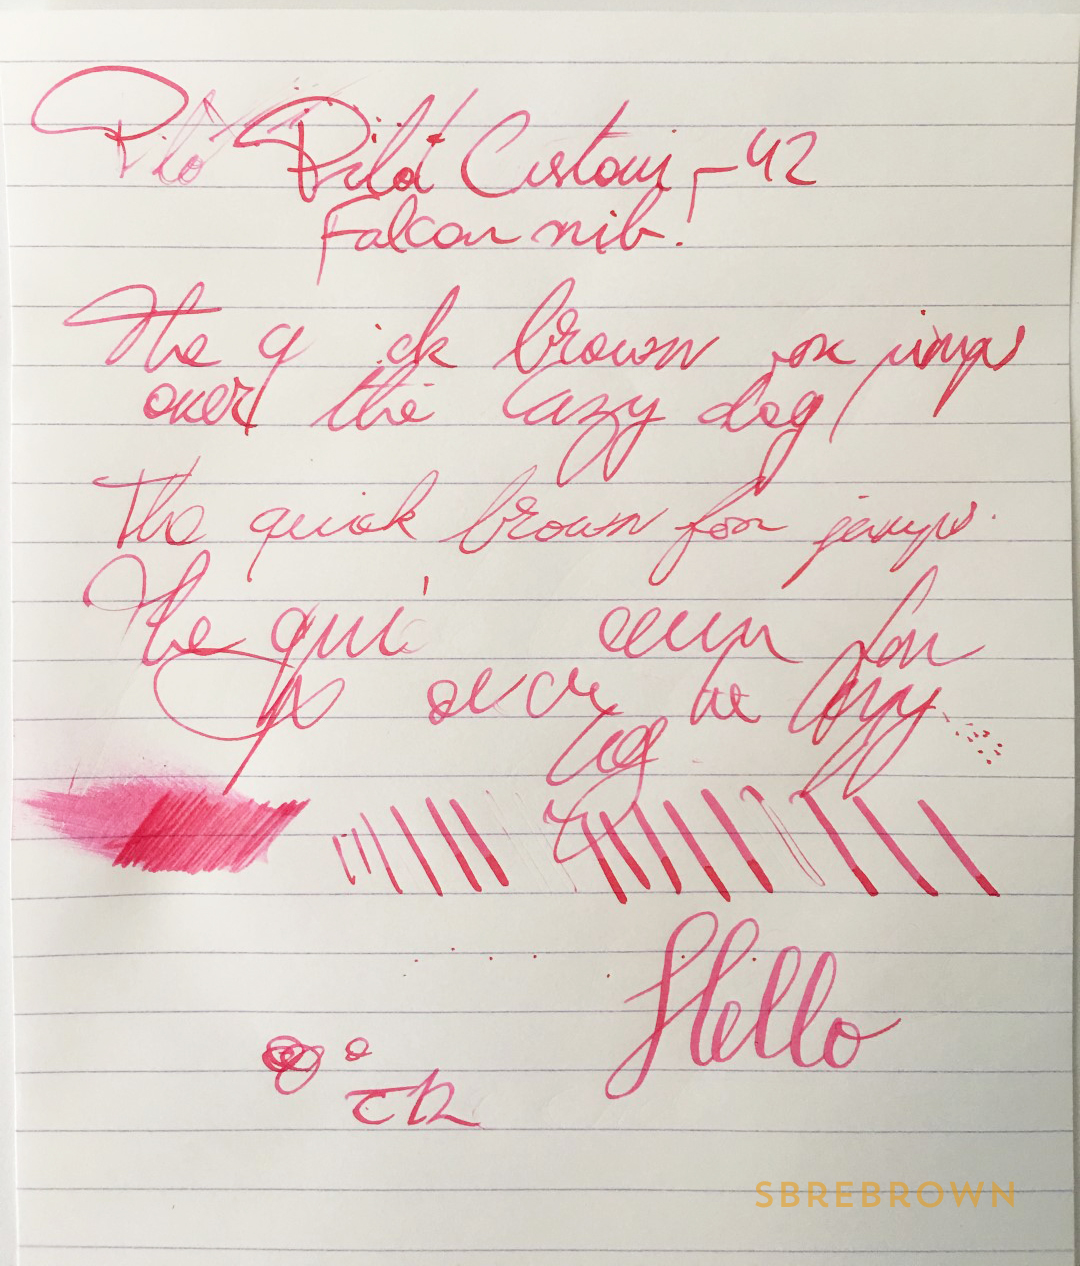 Pilo Pilot Custom 742
Falcon nib.
The q ick brown ox jumps
over the lazy dog
The quick brown fox jumps.
The qui fox
over the lazy
dog
Hello
SBREBROWN